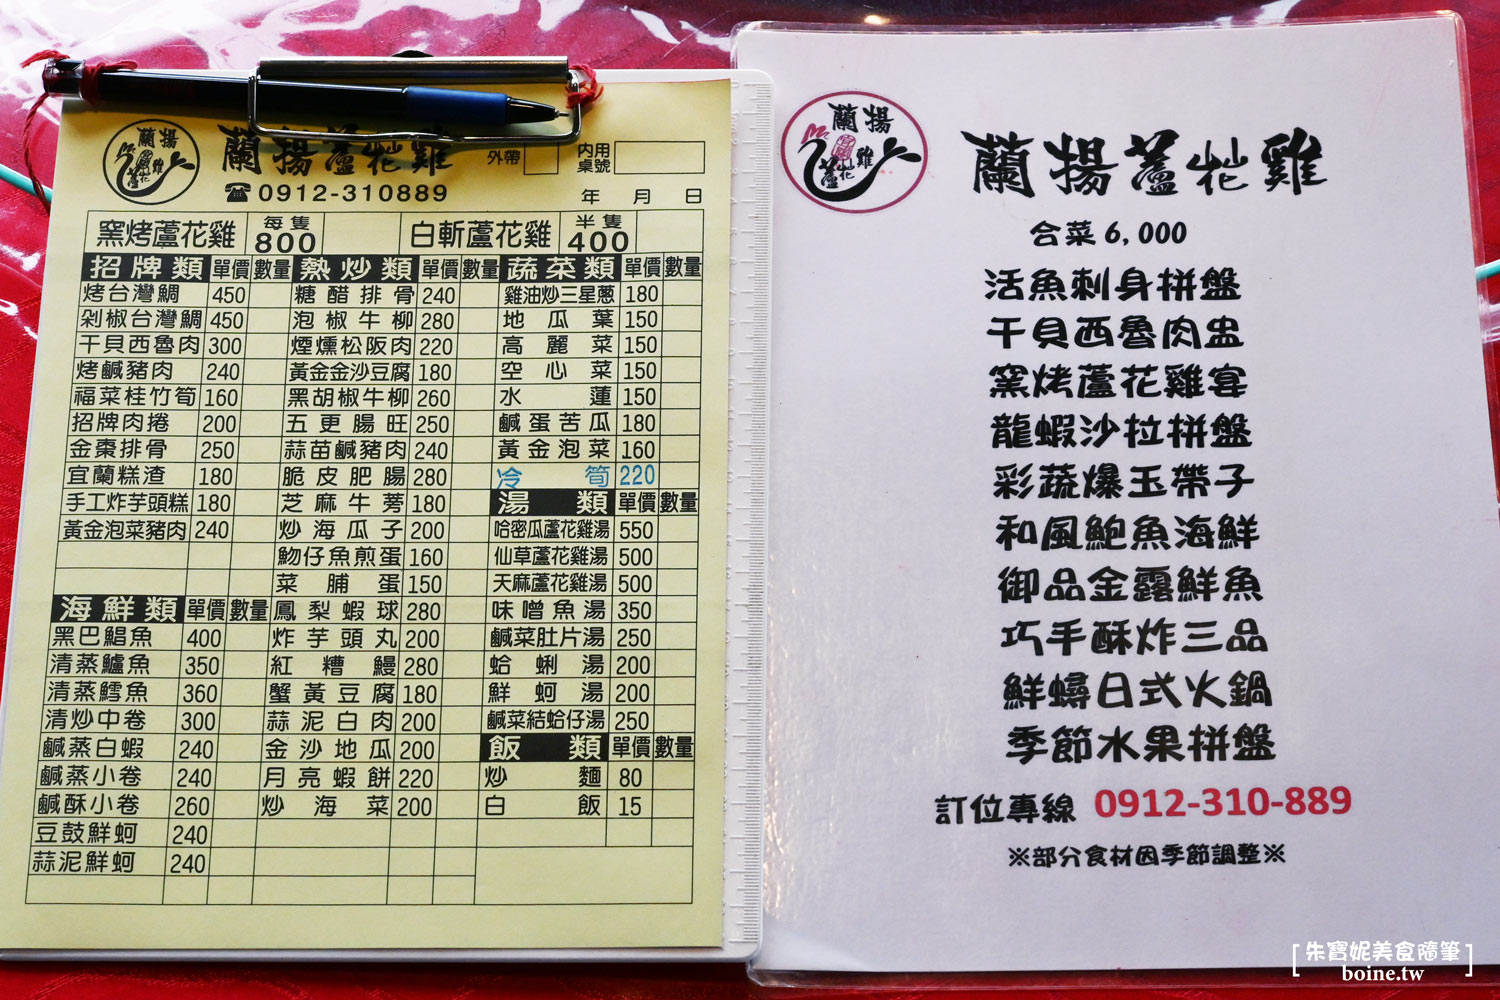 蘭揚蘆花雞
蘭揚蘆花雞
外帶
內用桌號
☎0912-310889
年 月 日
窯烤蘆花雞 每隻800
白斬蘆花雞 半隻400
招牌類 單價 數量
烤台灣鯛 450
剁椒台灣鯛 450
干貝西魯肉 300
烤鹹豬肉 240
福菜桂竹筍 160
招牌肉捲 200
金棗排骨 250
宜蘭糕渣 180
手工炸芋頭糕 180
黃金泡菜豬肉 240
海鮮類 單價 數量
黑巴鯧魚 400
清蒸鱸魚 350
清蒸鱈魚 360
清炒中卷 300
鹹蒸白蝦 240
鹹蒸小卷 240
鹹酥小卷 260
豆鼓鮮蚵 240
蒜泥鮮蚵 240
熱炒類 單價 數量
糖醋排骨 240
泡椒牛柳 280
煙燻松阪肉 220
黃金金沙豆腐 180
黑胡椒牛柳 260
五更腸旺 250
蒜苗鹹豬肉 240
脆皮肥腸 280
芝麻牛蒡 180
炒海瓜子 200
魩仔魚煎蛋 160
菜脯蛋 150
鳳梨蝦球 280
炸芋頭丸 200
紅糟鰻 280
蟹黃豆腐 180
蒜泥白肉 200
金沙地瓜 200
月亮蝦餅 220
炒海菜 200
蔬菜類 單價 數量
雞油炒三星蔥 180
地瓜葉 150
高麗菜 150
空心菜 150
水蓮 150
鹹蛋苦瓜 180
黃金泡菜 160
冷筍 220
湯類 單價 數量
哈密瓜蘆花雞湯 550
仙草蘆花雞湯 500
天麻蘆花雞湯 500
味噌魚湯 350
鹹菜肚片湯 250
蛤蜊湯 200
鮮蚵湯 200
鹹菜結蛤仔湯 250
飯類 單價 數量
炒麵 80
白飯 15
蘭揚蘆花雞
蘭揚蘆花雞
合菜6,000
活魚刺身拼盤
干貝西魯肉盅
窯烤蘆花雞宴
龍蝦沙拉拼盤
彩蔬爆玉帶子
和風鮑魚海鮮
御品金露鮮魚
巧手酥炸三品
鮮蟳日式火鍋
季節水果拼盤
訂位專線 0912-310-889
※部分食材因季節調整※
朱寶妮美食隨筆
boine.tw